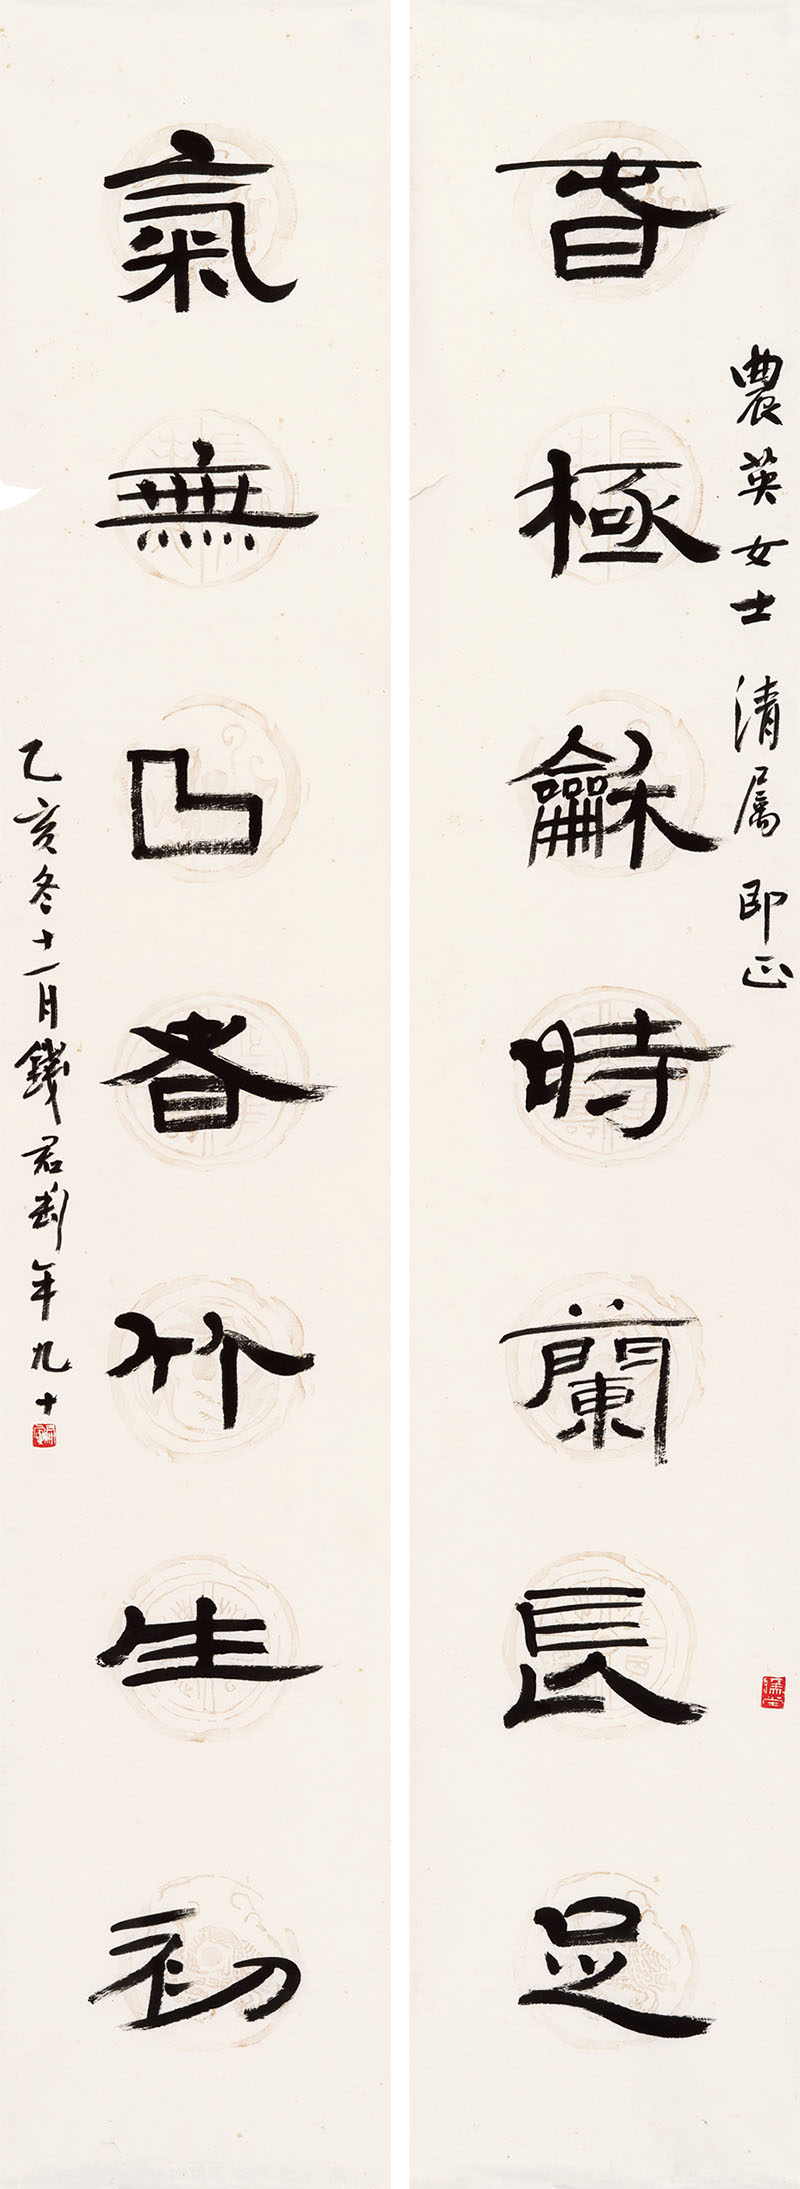 春極龢時蘭長足
農英女士 清属 即正
氣無曲者竹生初
乙亥冬十一月錢君匋年九十